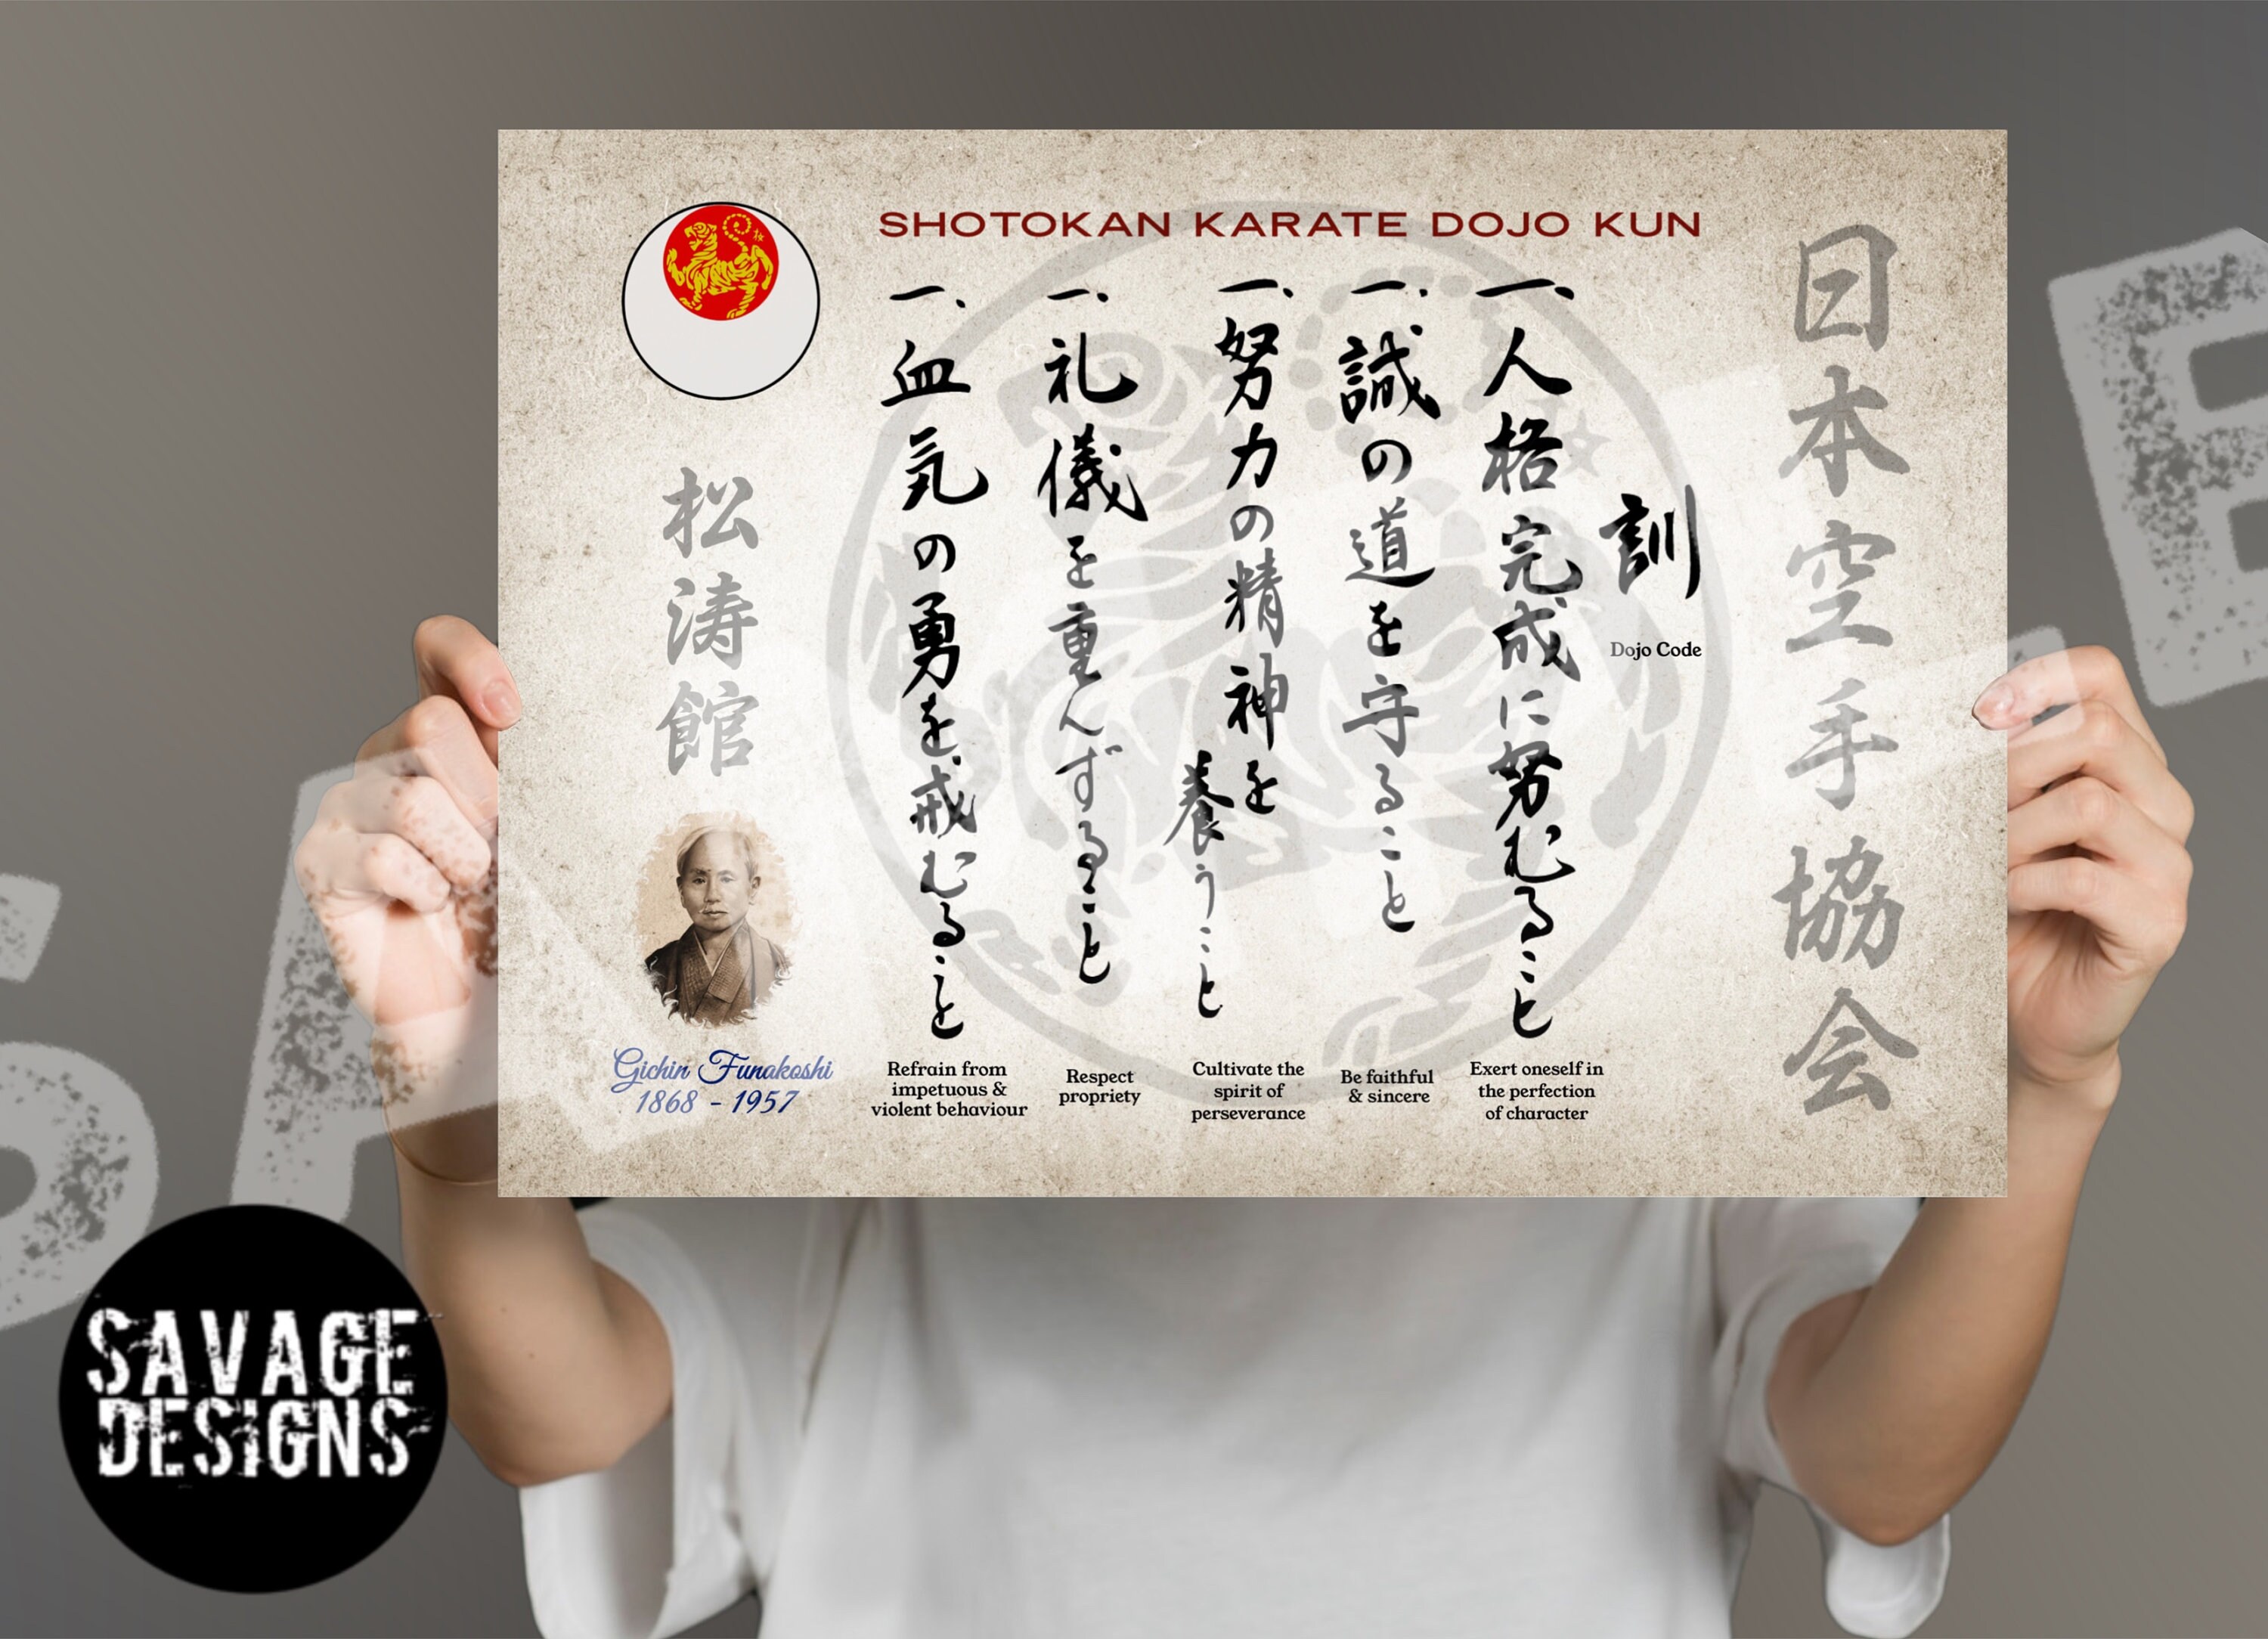 SHOTOKAN KARATE DOJO KUN
日本空手協会
訓
Dojo Code
一、人格完成に努むること
Exert oneself in
the perfection
of character
一、誠の道を守ること
Be faithful
& sincere
一、努力の精神を
養うこと
Cultivate the
spirit of
perseverance
一、礼儀を重んずること
Respect
propriety
一、血気の勇を戒むること
Refrain from
impetuous &
violent behaviour
松涛館
Gichin Funakoshi
1868 - 1957
SAVAGE
DESIGNS